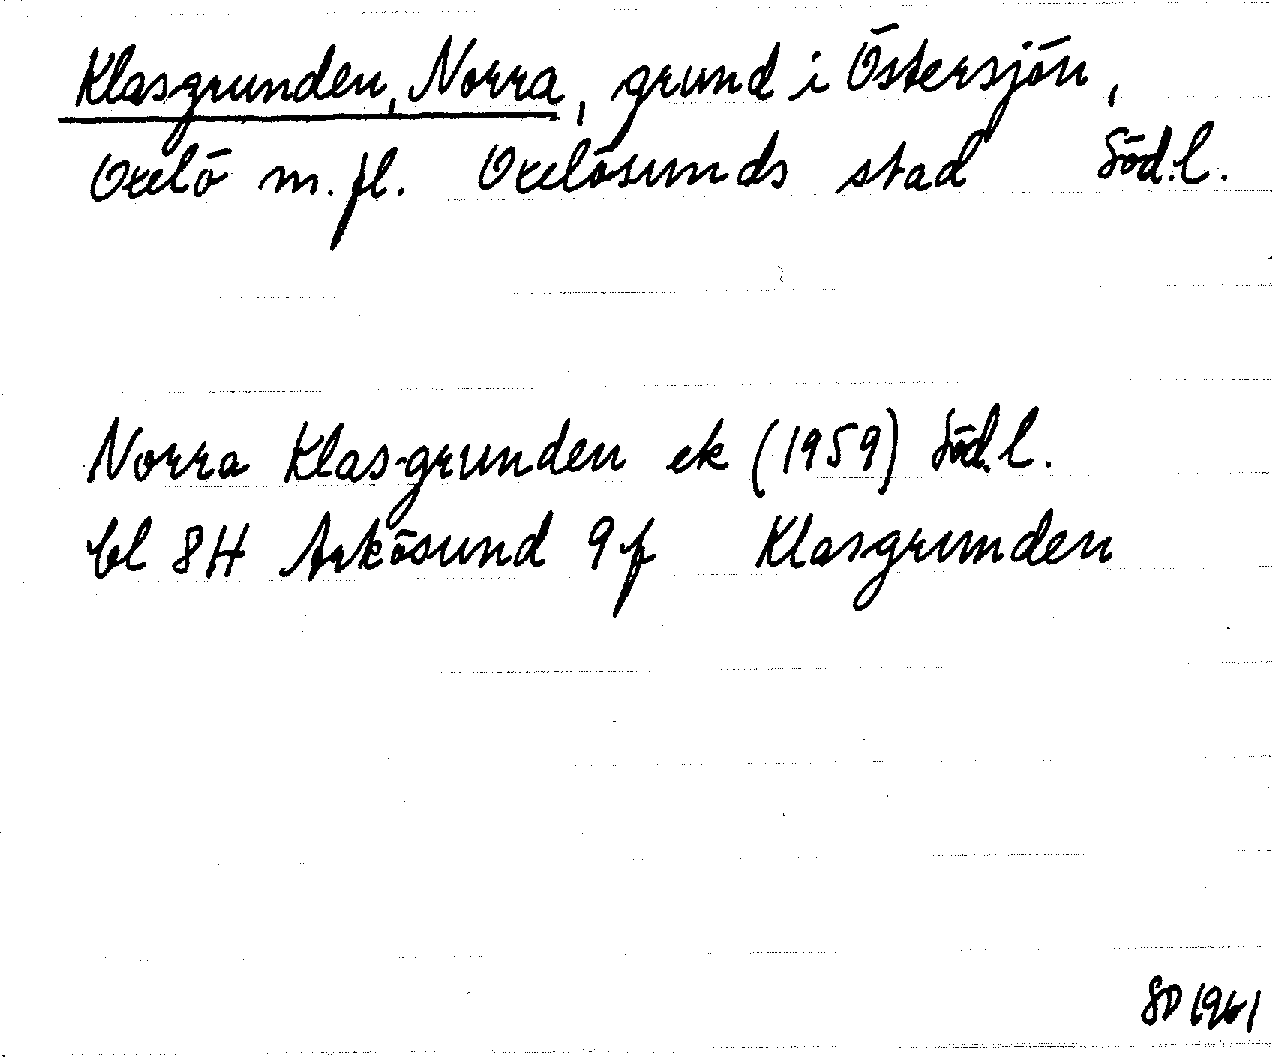 Klasgrunden, Norra, grund i Östersjön,
Oxelö m.fl. Oxelösunds stad Söd.l.
Norra Klasgrunden ek (1959) Söd.l.
bl 8H Arkösund 9f Klasgrunden
SD 1961